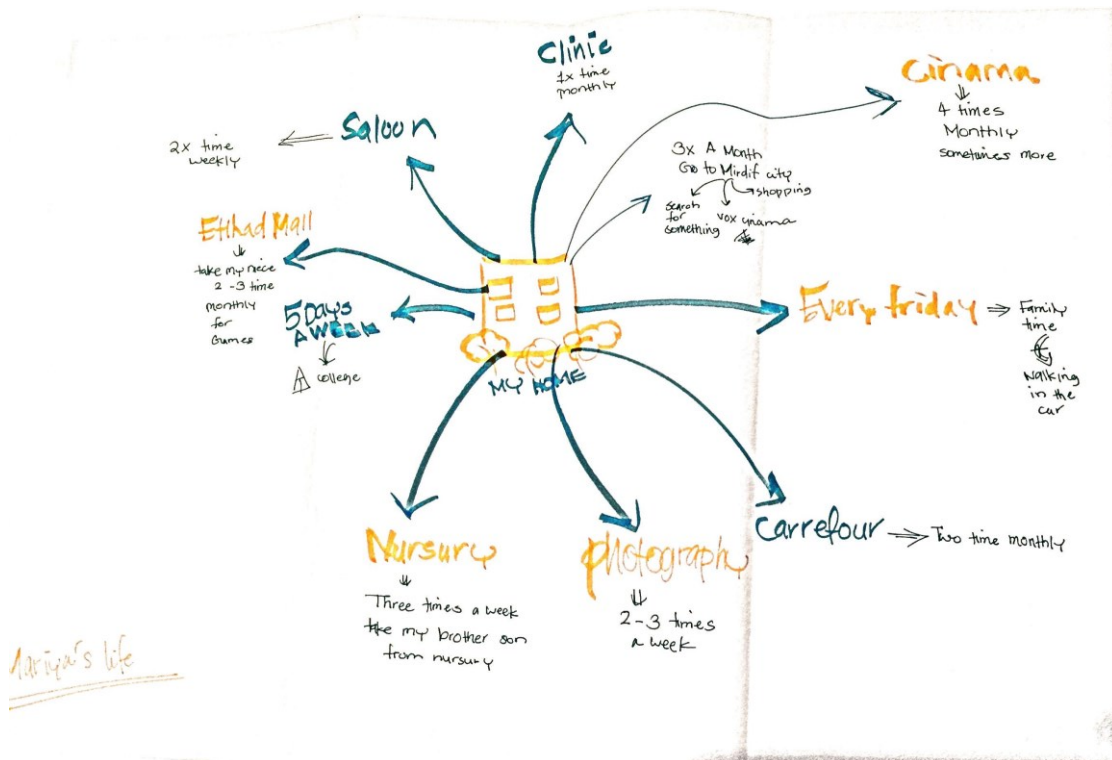 Clinic
1x time
monthly
Cinama
4 times
Monthly
sometimes more
Saloon
2x time
weekly
3x A Month
Go to Mirdif city
shopping
search
for
something
vox cinama
Etihad Mall
take my niece
2 -3 time
monthly
for
Games
5 Days
A WEEK
college
Every friday
Family
time
Walking
in the
car
MY HOME
Nursury
Three times a week
take my brother son
from nursury
photography
2-3 times
a week
Carrefour
Two time monthly
Mariya's life